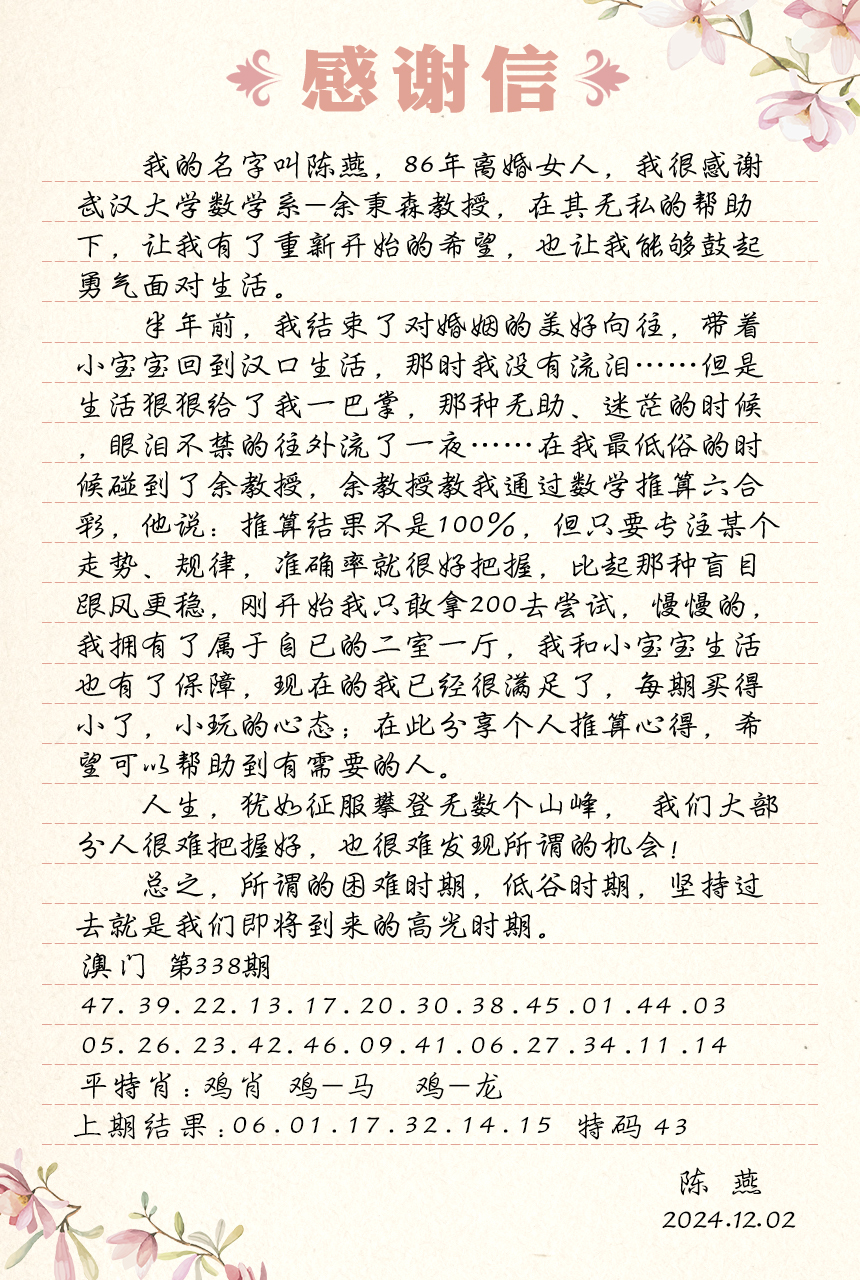 感谢信
我的名字叫陈燕，86年离婚女人，我很感谢
武汉大学数学系—余秉森教授，在其无私的帮助
下，让我有了重新开始的希望，也让我能够鼓起
勇气面对生活。
半年前，我结束了对婚姻的美好向往，带着
小宝宝回到汉口生活，那时我没有流泪……但是
生活狠狠给了我一巴掌，那种无助、迷茫的时候
，眼泪不禁的往外流了一夜……在我最低俗的时
候碰到了余教授，余教授教我通过数学推算六合
彩，他说：推算结果不是100%，但只要专注某个
走势、规律，准确率就很好把握，比起那种盲目
跟风更稳，刚开始我只敢拿200去尝试，慢慢的，
我拥有了属于自已的二室一厅，我和小宝宝生活
也有了保障，现在的我已经很满足了，每期买得
小了，小玩的心态；在此分享个人推算心得，希
望可以帮助到有需要的人。
人生，犹如征服攀登无数个山峰， 我们大部
分人很难把握好，也很难发现所谓的机会！
总之，所谓的困难时期，低谷时期，坚持过
去就是我们即将到来的高光时期。
澳门 第338期
47.39.22.13.17.20.30.38.45.01.44.03
05.26.23.42.46.09.41.06.27.34.11.14
平特肖：鸡肖 鸡—马 鸡—龙
上期结果：06.01.17.32.14.15 特码 43
陈 燕
2024.12.02